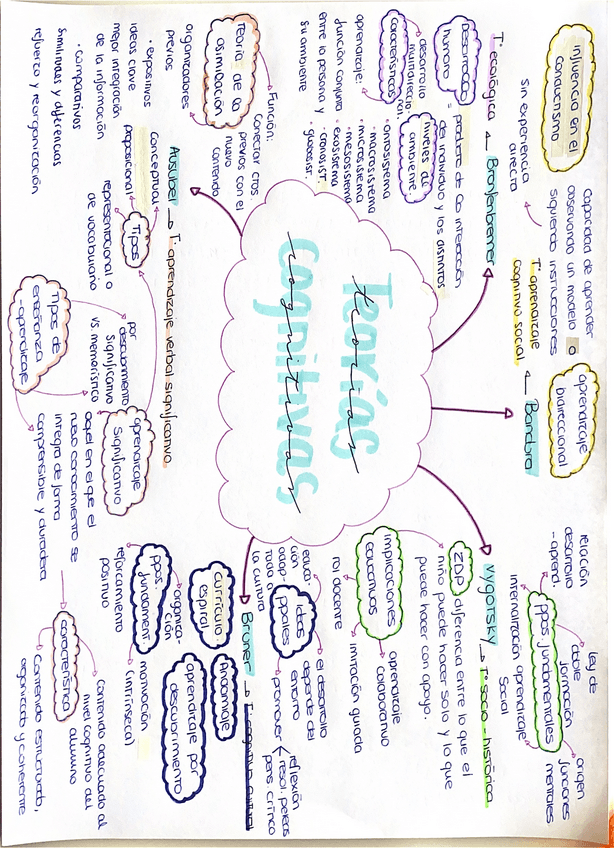 Teorías
cognitivas
teorías
cognitivas
influencia en el
conductismo
Capacidad de aprender
observando un modelo o
siguiendo instrucciones
sin experiencia
directa
T. aprendizaje
cognitivo social
Bandura
aprendizaje
bidireccional
T. ecológica
Bronfenbrenner
Desarrollo
humano
= producto de la interacción
del individuo y los distintos
niveles de
ambiente.
· ontosistema
· microsistema
· mesosistema
· exosistema
· macrosistema
características
desarrollo
multidirecio
nal.
aprendizaje:
función conjunta
entre la persona y
su ambiente
Vygotsky
T. socio-histórica
ppos. fundamentales
relación
desarrollo
- aprend.
ley de
doble
formación
origen
funciones
mentales
internalización
aprendizaje
Social
ZDP
diferencia entre lo que el
niño puede hacer solo y lo que
puede hacer con apoyo.
implicaciones
educativas
rol docente
imitación guiada
aprendizaje
colaborativo
Bruner
Ideas
ppales
el desarrollo
depende del
entorno
promover
reflexión
resol. pbleas
pens crítico
la cultura
currículo
espiral
Andamiaje
aprendizaje por
descubrimiento
ppos.
fundament
organiza-
ción
motivación
(intrínseca)
reforzamiento
positivo
Ausubel
T. aprendizaje verbal significativo
Teoría de la
asimilación
Función:
Conectar ctos
previos con el
nuevo
contenido
organizadores
previos
· expositivos
ideas clave
mejor integración
de la información
· comparativos
similitudes y diferencias
refuerzo y reorganización
Tipos
Conceptual
proposicional
representacional o
de vocabulario
aprendizaje
Significativo
aquel en el que el
nuevo conocimiento se
integra de forma
comprensible y duradera
Tipos de
enseñanza
-aprendizaje
por
descubrimiento
significativo
vs. memorístico
característica
Contenido adecuado al
nivel cognitivo del
alumno
Contenido estructurado,
organizado y coherente